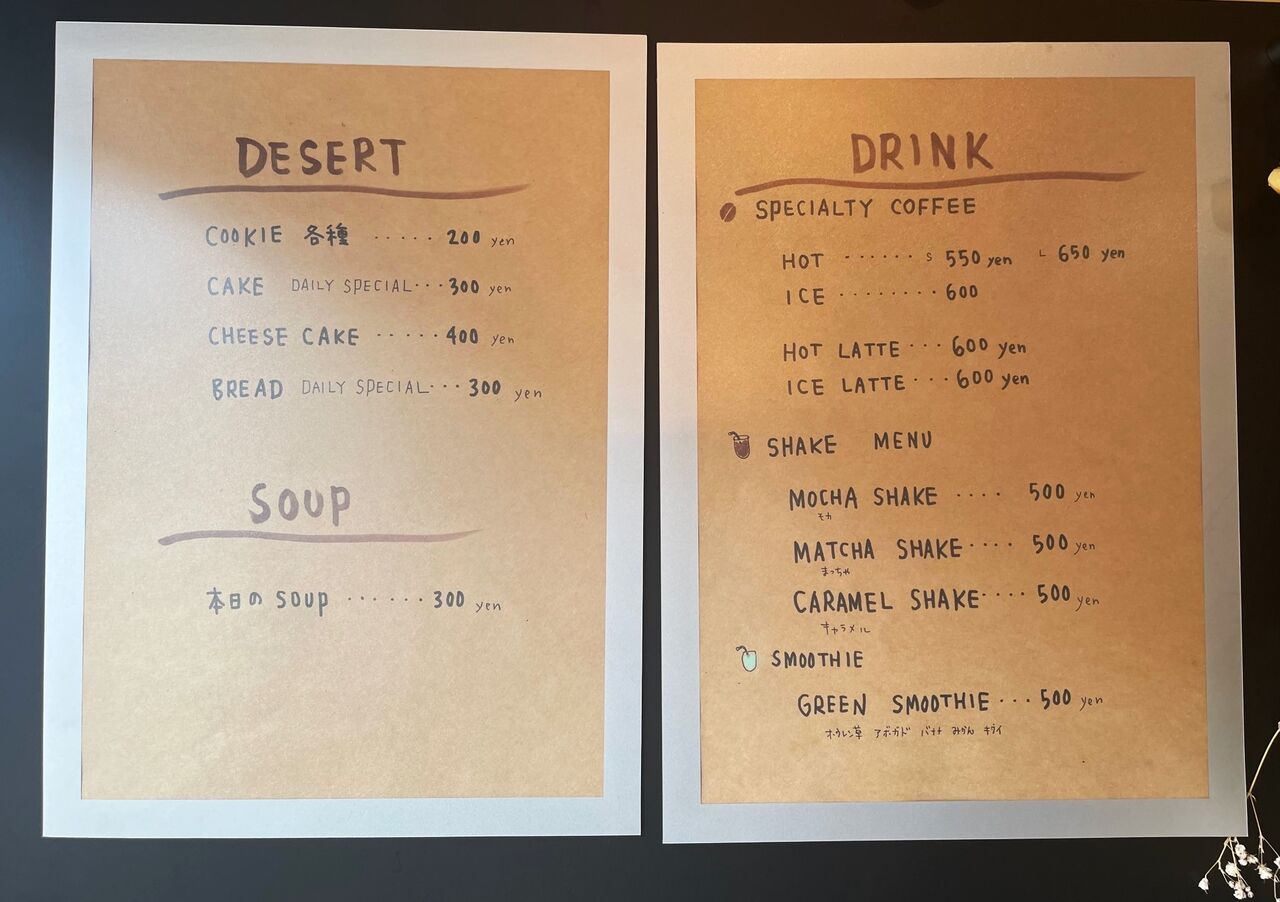 DESERT
COOKIE 各種 ····· 200 yen
CAKE DAILY SPECIAL ··· 300 yen
CHEESE CAKE ····· 400 yen
BREAD DAILY SPECIAL ··· 300 yen
SOUP
本日の SOUP ······ 300 yen
DRINK
SPECIALTY COFFEE
HOT ······ S 550 yen L 650 yen
ICE ········ 600
HOT LATTE ··· 600 yen
ICE LATTE ··· 600 yen
SHAKE MENU
MOCHA SHAKE ···· 500 yen
モカ
MATCHA SHAKE ···· 500 yen
まっちゃ
CARAMEL SHAKE ···· 500 yen
キャラメル
SMOOTHIE
GREEN SMOOTHIE ··· 500 yen
ホウレン草 アボガド バナナ みかん